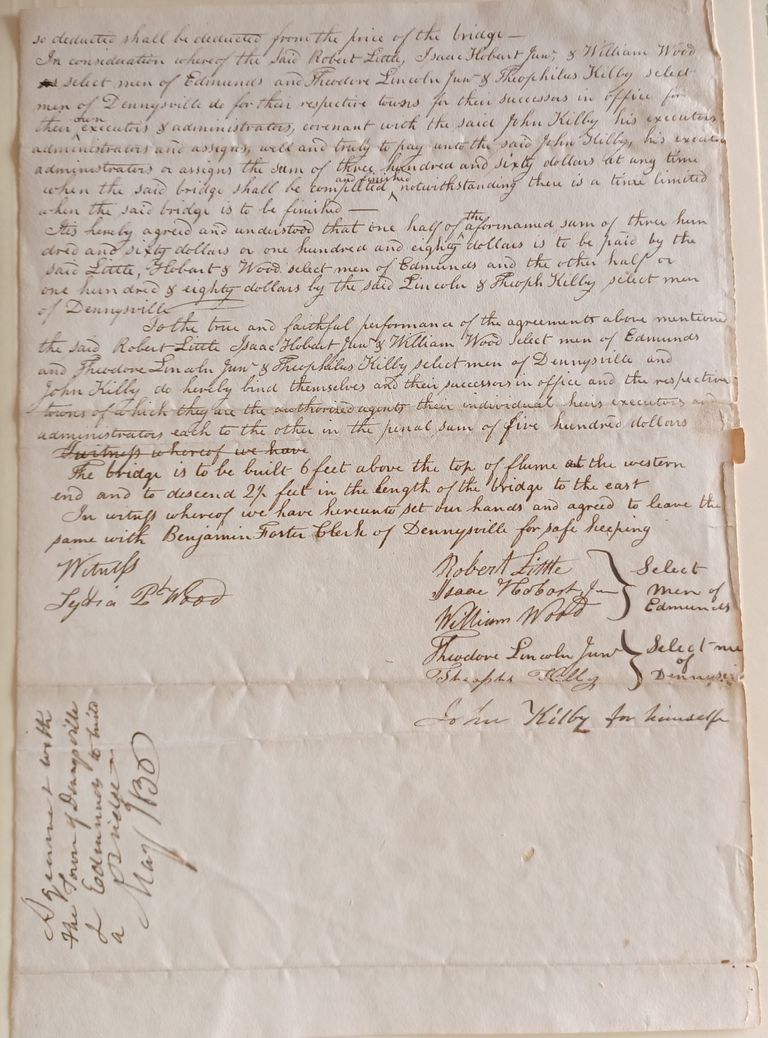 so deducted shall be deducted from the price of the bridge —
In consideration whereof the said Robert Little, Isaac Hobart Junr, & William Wood
select men of Edmunds and Theodore Lincoln Junr & Theophilus Kilby select
men of Dennysville do for their respective towns for their successors in office for
their executors & administrators, covenant with the said John Kilby his executors
administrators and assigns, well and truly to pay unto the said John Kilby, his executors
administrators or assigns the sum of three hundred and sixty dollars at any time
when the said bridge shall be completed and finished notwithstanding there is a time limited
when the said bridge is to be finished —
Its hereby agreed and understood that one half of the afornamed sum of three hun
dred and sixty dollars or one hundred and eighty dollars is to be paid by the
said Little, Hobart & Wood select men of Edmunds and the other half or
one hundred & eighty dollars by the said Lincoln & Theoph Kilby select men
of Dennysville
To the true and faithful performance of the agreements above mentioned
the said Robert Little Isaac Hobart Junr & William Wood Select men of Edmunds
and Theodore Lincoln Junr & Theophilus Kilby select men of Dennysville and
John Kilby do hereby bind themselves and their successors in office and the respective
towns of which they are the authorized agents their individual heirs executors and
administrators each to the other in the penal sum of five hundred dollars
In witness whereof we have
The bridge is to be built 6 feet above the top of flume at the western
end and to descend 2½ feet in the length of the bridge to the east
In witness whereof we have hereunto set our hands and agreed to leave the
same with Benjamin Foster Clerk of Dennysville for safe keeping
Witness
Lydia Wood
Robert Little
Isaac Hobart Jun
William Wood
Select
men of
Edmunds
Theodore Lincoln Junr
Theophs Kilby
Select me
of
Dennysvi
John Kilby for himself
Agreement with
the Town of Dennysville
& Edmunds to build
a Bridge
May 1830